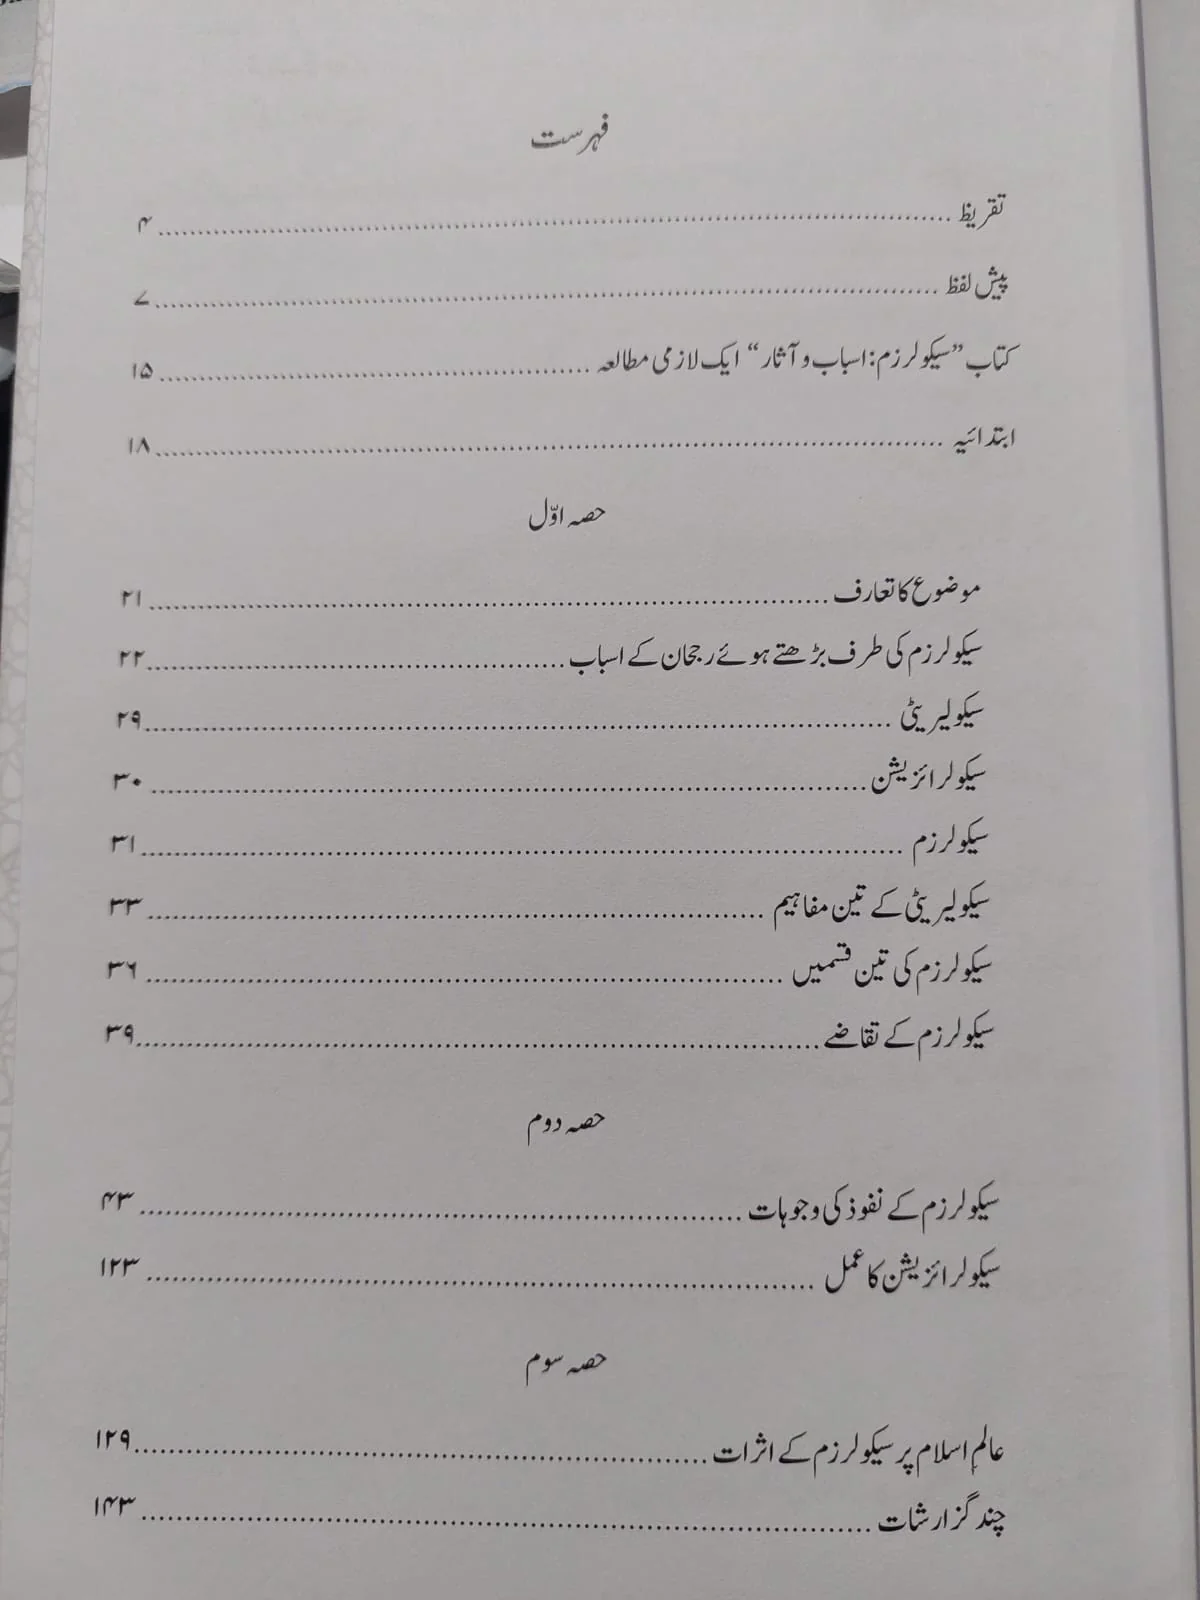 فہرست
تقریظ ........ ۴
پیش لفظ ........ ۷
کتاب ”سیکولرزم: اسباب و آثار“ ایک لازمی مطالعہ ........ ۱۵
ابتدائیہ ........ ۱۸
حصہ اوّل
موضوع کا تعارف ........ ۲۱
سیکولرزم کی طرف بڑھتے ہوئے رجحان کے اسباب ........ ۲۲
سیکولیریٹی ........ ۲۹
سیکولرائزیشن ........ ۳۰
سیکولرزم ........ ۳۱
سیکولیریٹی کے تین مفاہیم ........ ۳۳
سیکولرزم کی تین قسمیں ........ ۳۶
سیکولرزم کے تقاضے ........ ۳۹
حصہ دوم
سیکولرزم کے نفوذ کی وجوہات ........ ۴۳
سیکولرائزیشن کا عمل ........ ۱۲۳
حصہ سوم
عالمِ اسلام پر سیکولرزم کے اثرات ........ ۱۲۹
چند گزارشات ........ ۱۴۳